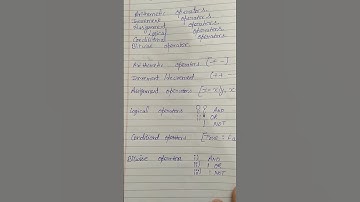 Arithmetic operators
Increment operators
Assignment operators
Logical operators
Conditional operators
Bitwise operator
Arithmetic operators [+ -]
Increment / Decrement [++ -
Assignment operators
Logical operators AND
OR
NOT
Conditional operators [True : Fa
Bitwise operator AND
OR
NOT